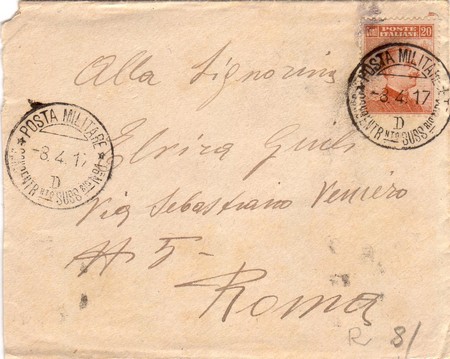 POSTE ITALIANE
20
POSTA MILITARE
-8.4.17
D
POSTA MILITARE
-8.4.17
D
Alla Signorina
Elvira
Via Sebastiano Veniero
5
Roma
R 8/